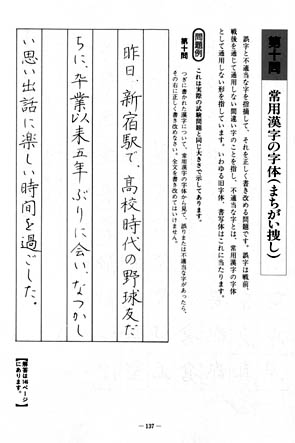 第十問
常用漢字の字体(まちがい捜し)
誤字と不適当な字を指摘して、それを正しく書き改める問題です。誤字は戦前、
戦後を通じて通用しない間違い字のことを指し、不適当な字とは、常用漢字の字体
として通用しない形を指しています。いわゆる旧字体、書写体はこれに当たります。
問題例
これは実際の試験問題と同じ大きさで示してあります。
第十問
つぎに書かれた漢字について、常用漢字の字体から見て、誤りまたは不適当な字があったら、
その右に正しく書き改めなさい。全文を書き改めてはいけません。
昨日、新宿駅で、高校時代の野球友だ
ちに、卒業以来五年ぶりに会い、なつかし
い思い出話に楽しい時間を過ごした。
【解答は146ページ
にあります。】
— 137 —